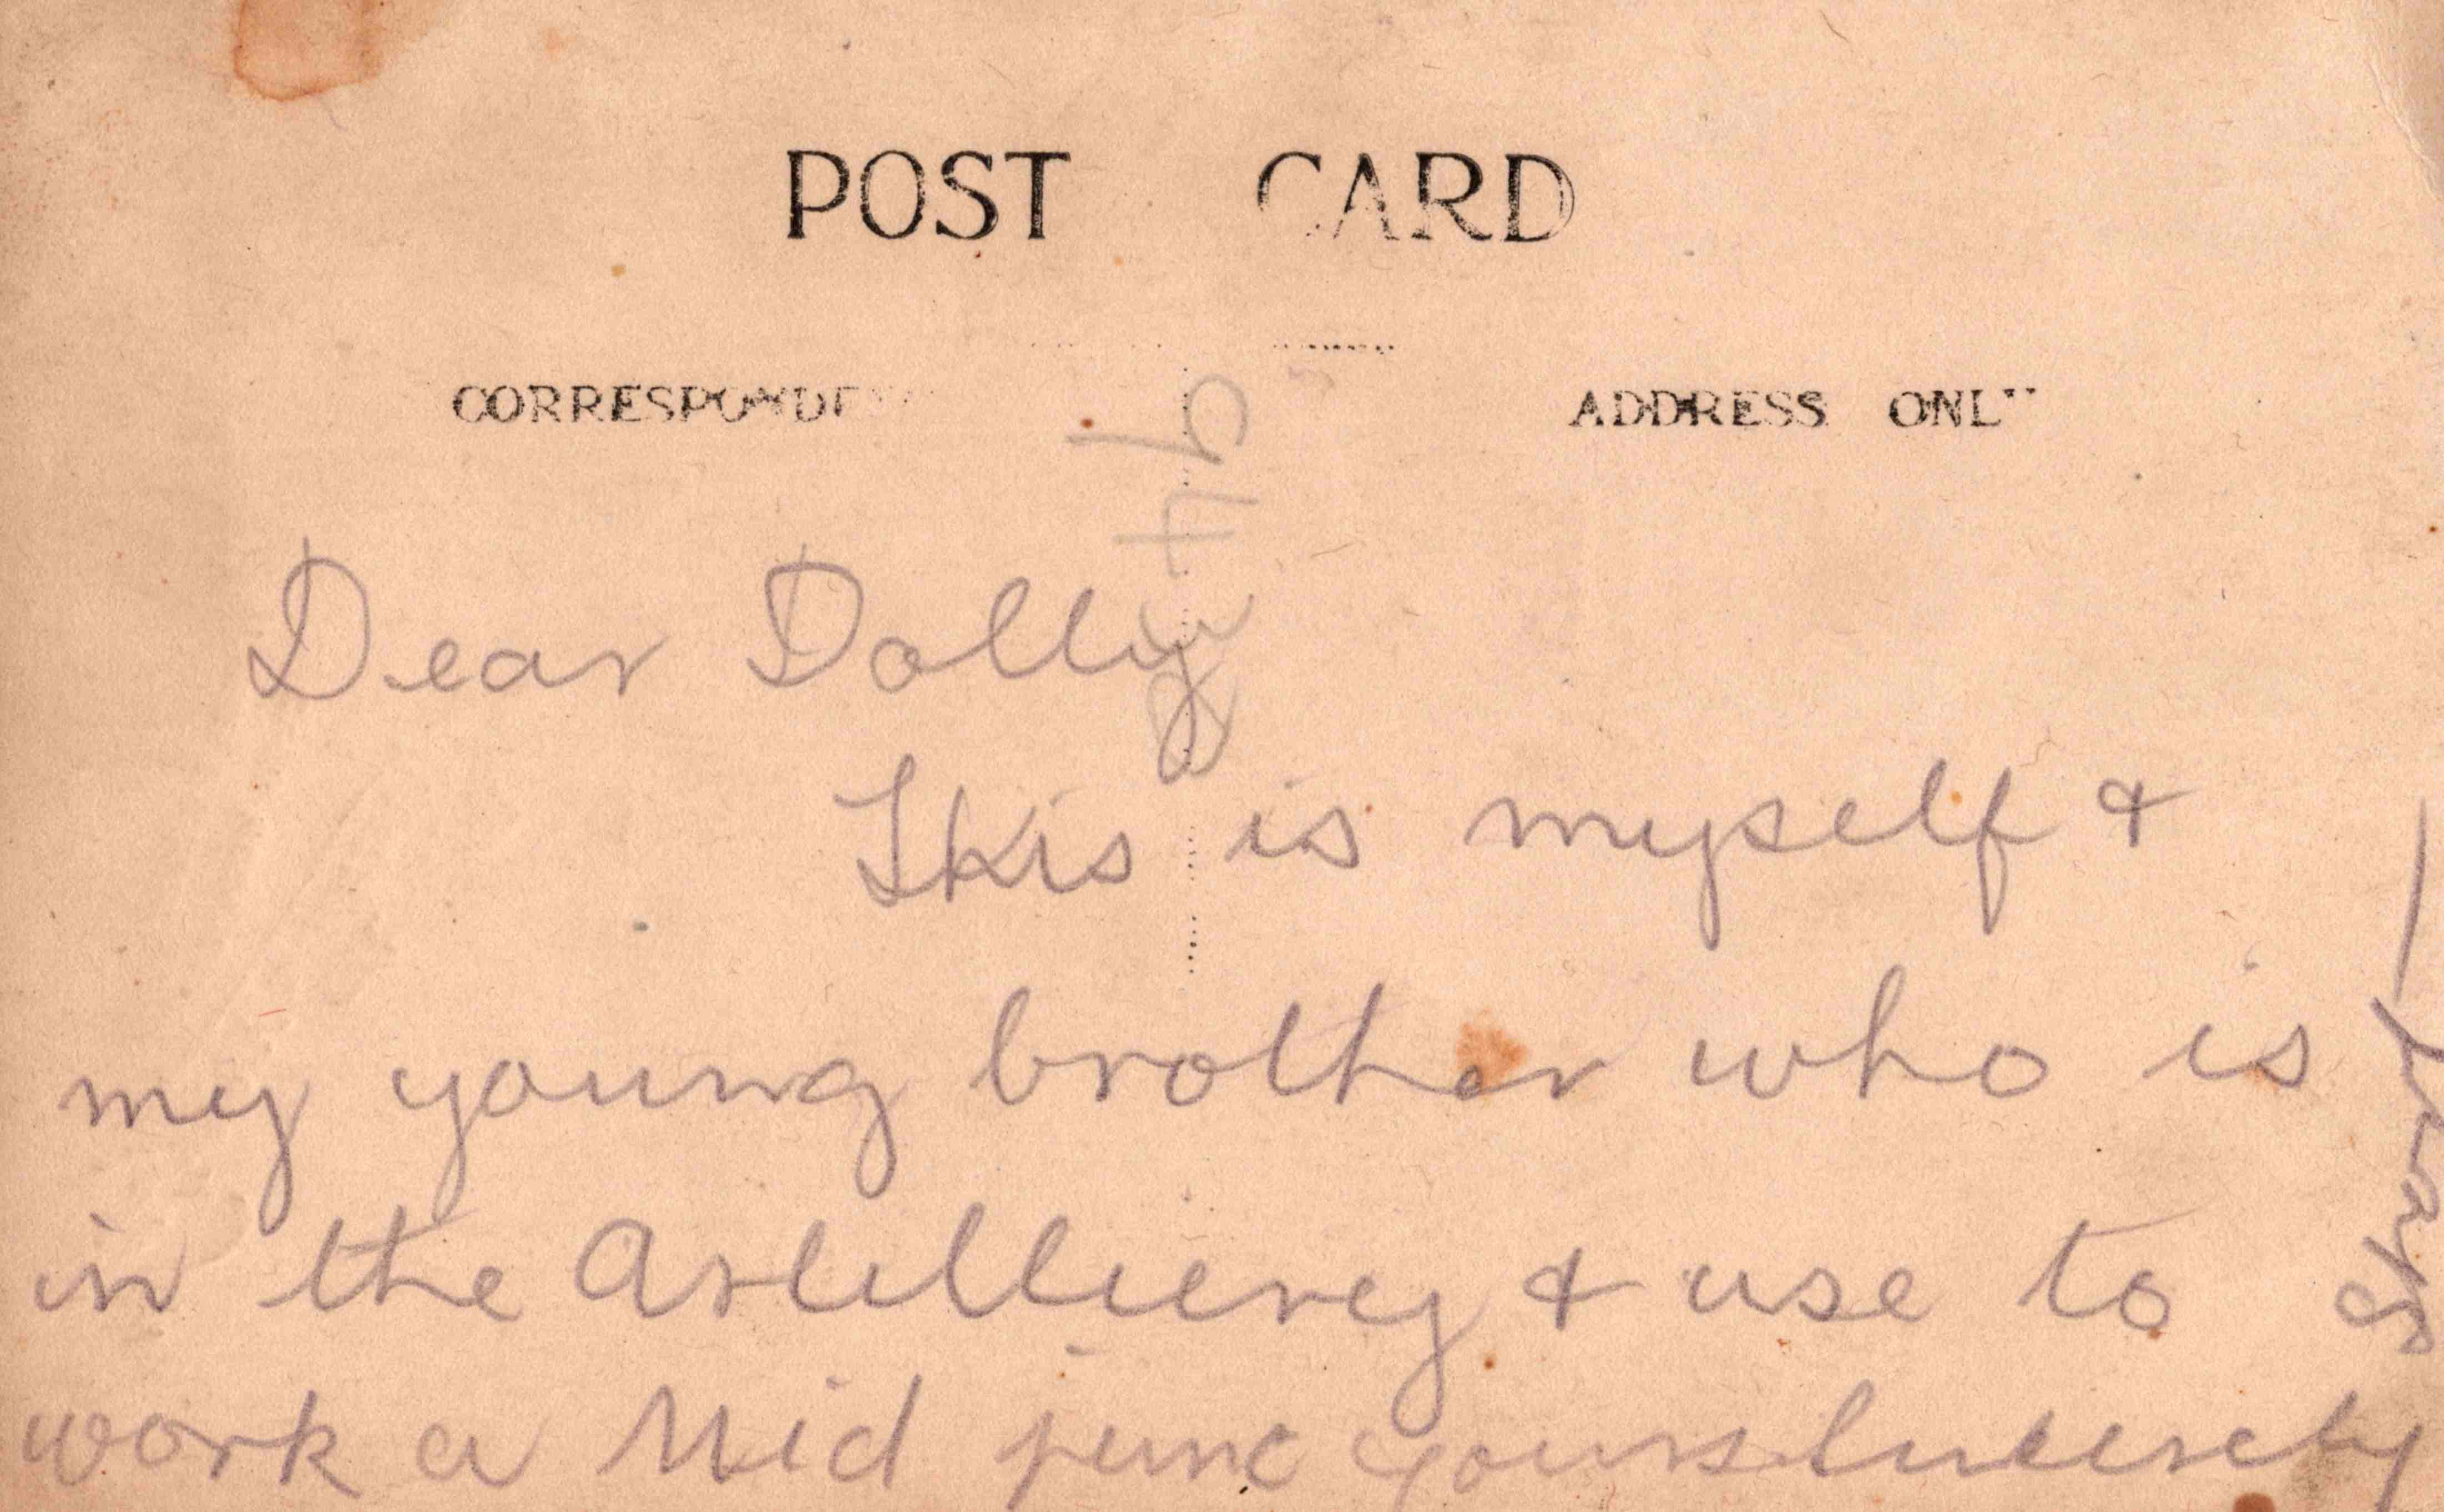 POST CARD
CORRESPONDE
ADDRESS ONLY
Dear Dolly
This is myself &
my young brother who is
in the Artillierey & use to
work a Mid junc yours